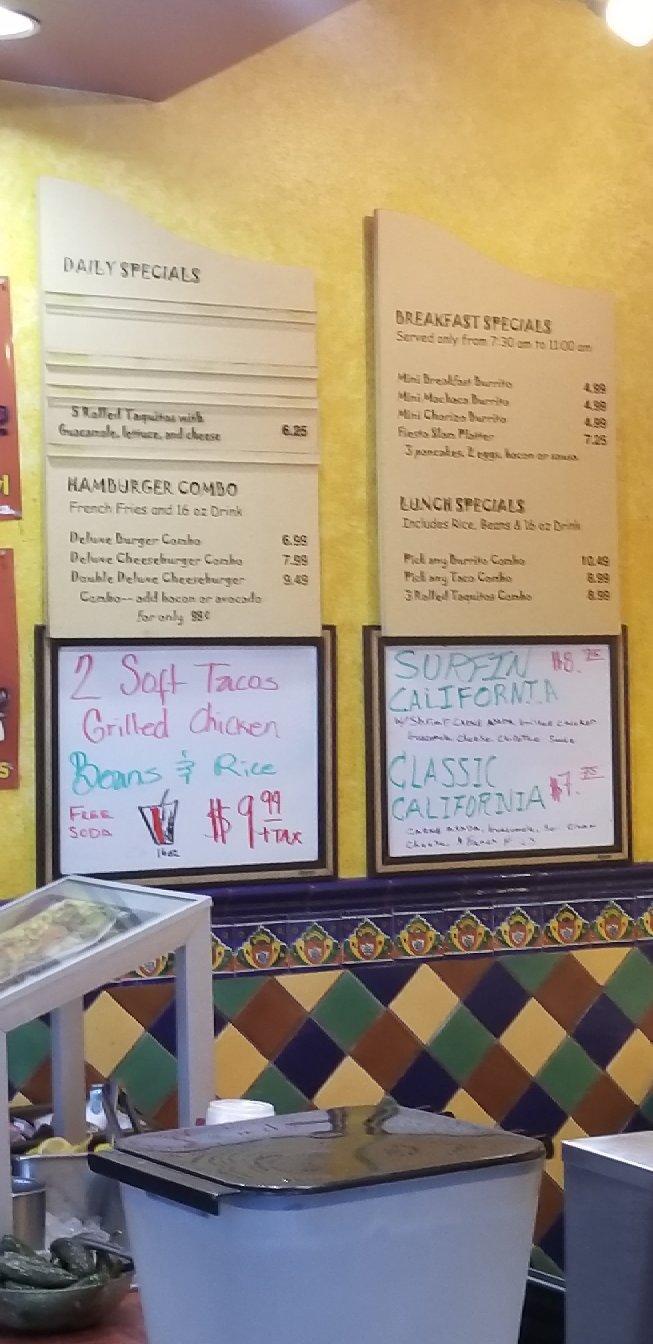 DAILY SPECIALS
5 Rolled Taquitos with
Guacamole, lettuce, and cheese 6.25
HAMBURGER COMBO
French Fries and 16 oz Drink
Deluxe Burger Combo 6.99
Deluxe Cheeseburger Combo 7.99
Double Deluxe Cheeseburger 9.49
Combo-- add bacon or avocado
for only 99¢
2 Soft Tacos
Grilled Chicken
Beans & Rice
FREE
SODA
16oz
$9.99
+TAX
BREAKFAST SPECIALS
Served only from 7:30 am to 11:00 am
Mini Breakfast Burrito 4.99
Mini Machaca Burrito 4.99
Mini Chorizo Burrito 4.99
Fiesta Slam Platter 7.25
3 pancakes, 2 eggs, bacon or sausa
LUNCH SPECIALS
Includes Rice, Beans & 16 oz Drink
Pick any Burrito Combo 10.49
Pick any Taco Combo 8.99
3 Rolled Taquitos Combo 8.99
SURFIN $8.75
CALIFORNIA
W/ Shrimp Carne Asada Grilled Chicken
Guacamole Cheese Chipotle Sauce
CLASSIC
CALIFORNIA $7.75
Carne Asada, Guacamole, Sour Cream
Cheese, & French